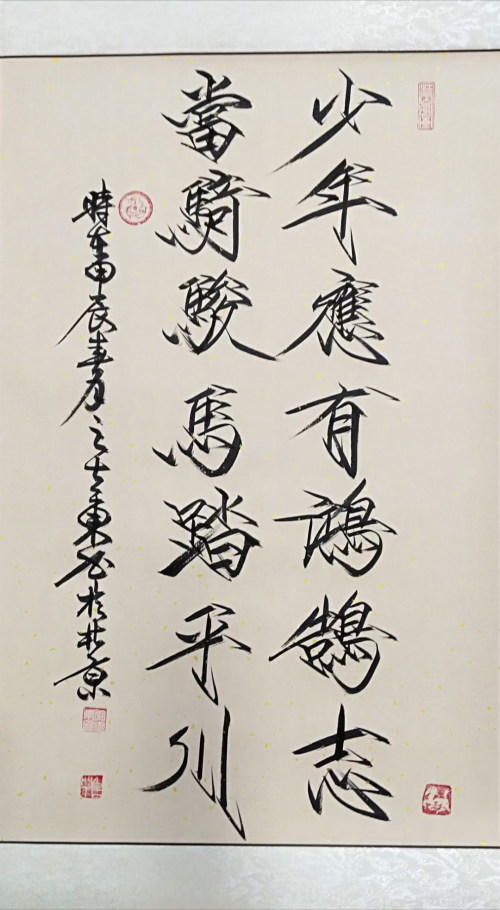 少年應有鴻鵠志
當騎駿馬踏平川
時在甲辰春月之東於北京